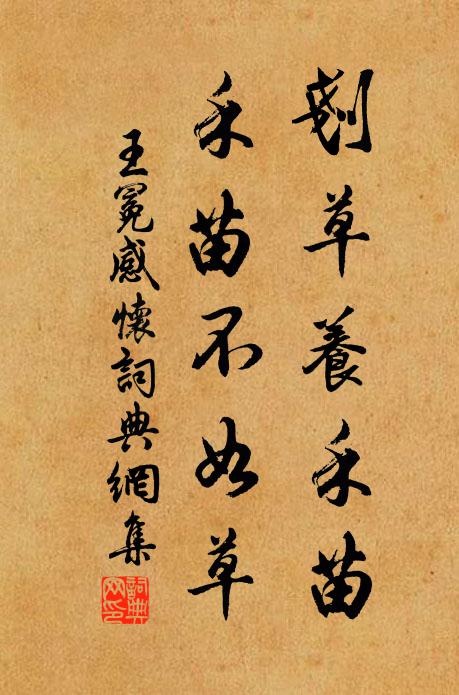 剗草養禾苗
禾苗不如草
王冕感懷詞典網集
詞典网印